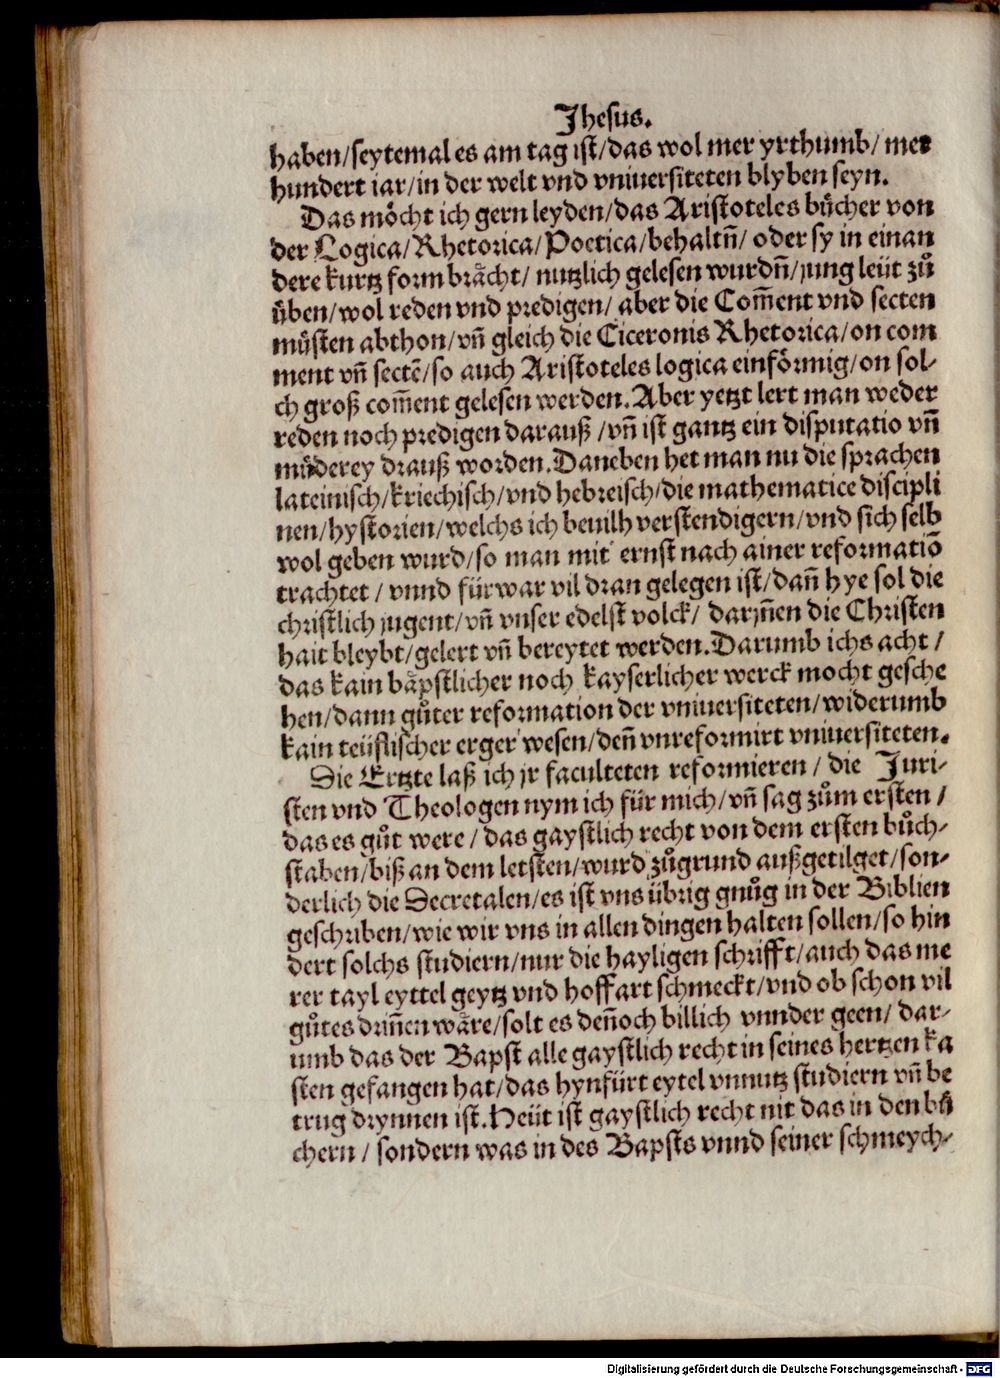 Jhesus.
haben/seytemal es am tag ist/das wol mer yrthumb/mer
hundert iar/in der welt vnd vniuersiteten blyben seyn.
Das möcht ich gern leyden/das Aristoteles bücher von
der Logica/Rhetorica/Poetica/behaltn̄/oder sy in einan
dere kurtz form brächt/nutzlich gelesen wurdn̄/jung leüt zů
üben/wol reden vnd predigen/aber die Com̄ent vnd secten
müsten abthon/vn̄ gleich die Ciceronis Rhetorica/on com
ment vn̄ sectē/so auch Aristoteles logica einförmig/on sol-
ch groß com̄ent gelesen werden. Aber yetzt lert man weder
reden noch predigen darauß/vn̄ ist gantz ein disputatio vn̄
müderey drauß worden. Daneben het man nu die sprachen
lateinisch/kriechisch/vnd hebreisch/die mathematice discipli
nen/hystorien/welchs ich beuilh verstendigern/vnd sich selb
wol geben wurd/so man mit ernst nach ainer reformatiō
trachtet/vnnd fürwar vil dran gelegen ist/dan̄ hye sol die
christlich jugent/vn̄ vnser edelst volck/darjn̄en die Christen
hait bleybt/gelert vn̄ bereytet werden. Darumb ichs acht/
das kain bäpstlicher noch kayserlicher werck mocht gesche
hen/dann gůter reformation der vniuersiteten/widerumb
kain teüflischer erger wesen/den̄ vnreformirt vniuersiteten.
Die Ertzte laß ich jr faculteten reformieren/die Juri-
sten vnd Theologen nym ich für mich/vn̄ sag zům ersten/
das es gůt were/das gaystlich recht von dem ersten bůch-
staben/biß an dem letsten/wurd zůgrund außgetilget/son-
derlich die Decretalen/es ist vns übrig gnůg in der Biblien
geschriben/wie wir vns in allen dingen halten sollen/so hin
dert solchs studiern/nur die hayligen schrifft/auch das me
rer tayl eyttel geytz vnd hoffart schmeckt/vnd ob schon vil
gůtes drin̄en wäre/solt es den̄och billich vnnder geen/dar-
umb das der Bapst alle gaystlich recht in seines hertzen ka
sten gefangen hat/das hynfürt eytel vnnutz studiern vn̄ be
trug drynnen ist. Heüt ist gaystlich recht nit das in den bü
chern/sondern was in des Bapsts vnnd seiner schmeych-
Digitalisierung gefördert durch die Deutsche Forschungsgemeinschaft - DFG